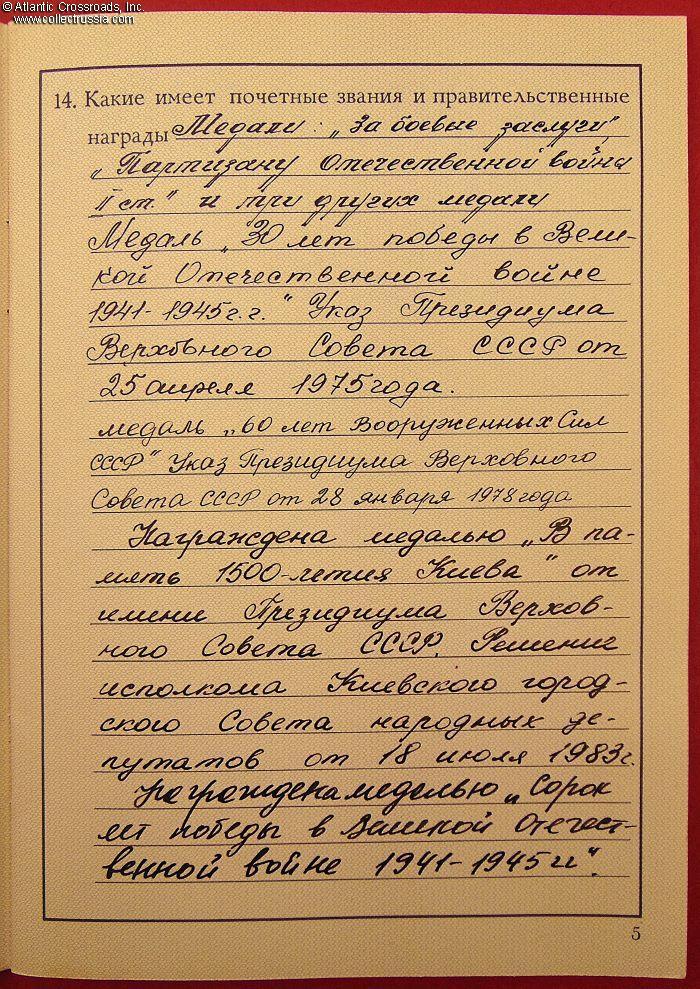 © Atlantic Crossroads, Inc.
www.collectrussia.com
14. Какие имеет почетные звания и правительственные
награды Медали: „За боевые заслуги"
„Партизану Отечественной война
II ст." и три других медали
Медаль „30 лет победы в Вели-
кой Отечественной войне
1941-1945г.г." Указ Президиума
Верховного Совета СССР от
25 апреля 1975 года.
медаль „60 лет Вооруженных Сил
СССР" Указ Президиума Верховного
Совета СССР от 28 января 1978 года
Награждена медалью „В па-
мять 1500-летия Киева" от
имени Президиума Верхов-
ного Совета СССР. Решение
исполкома Киевского город-
ского Совета народных де-
путатов от 18 июля 1983г.
Награждена медалью „Сорок
лет победы в Великой Отечест-
венной войне 1941-1945 гг".
5